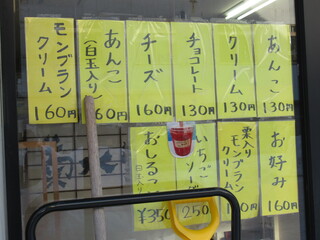 あんこ
130円
クリーム
130円
チョコレート
130円
チーズ
160円
あんこ
(白玉入り)
60円
モンブラン
クリーム
160円
お好み
160円
栗入り
モンブラン
クリーム
いちご
250
おしるこ
白玉入り
¥350